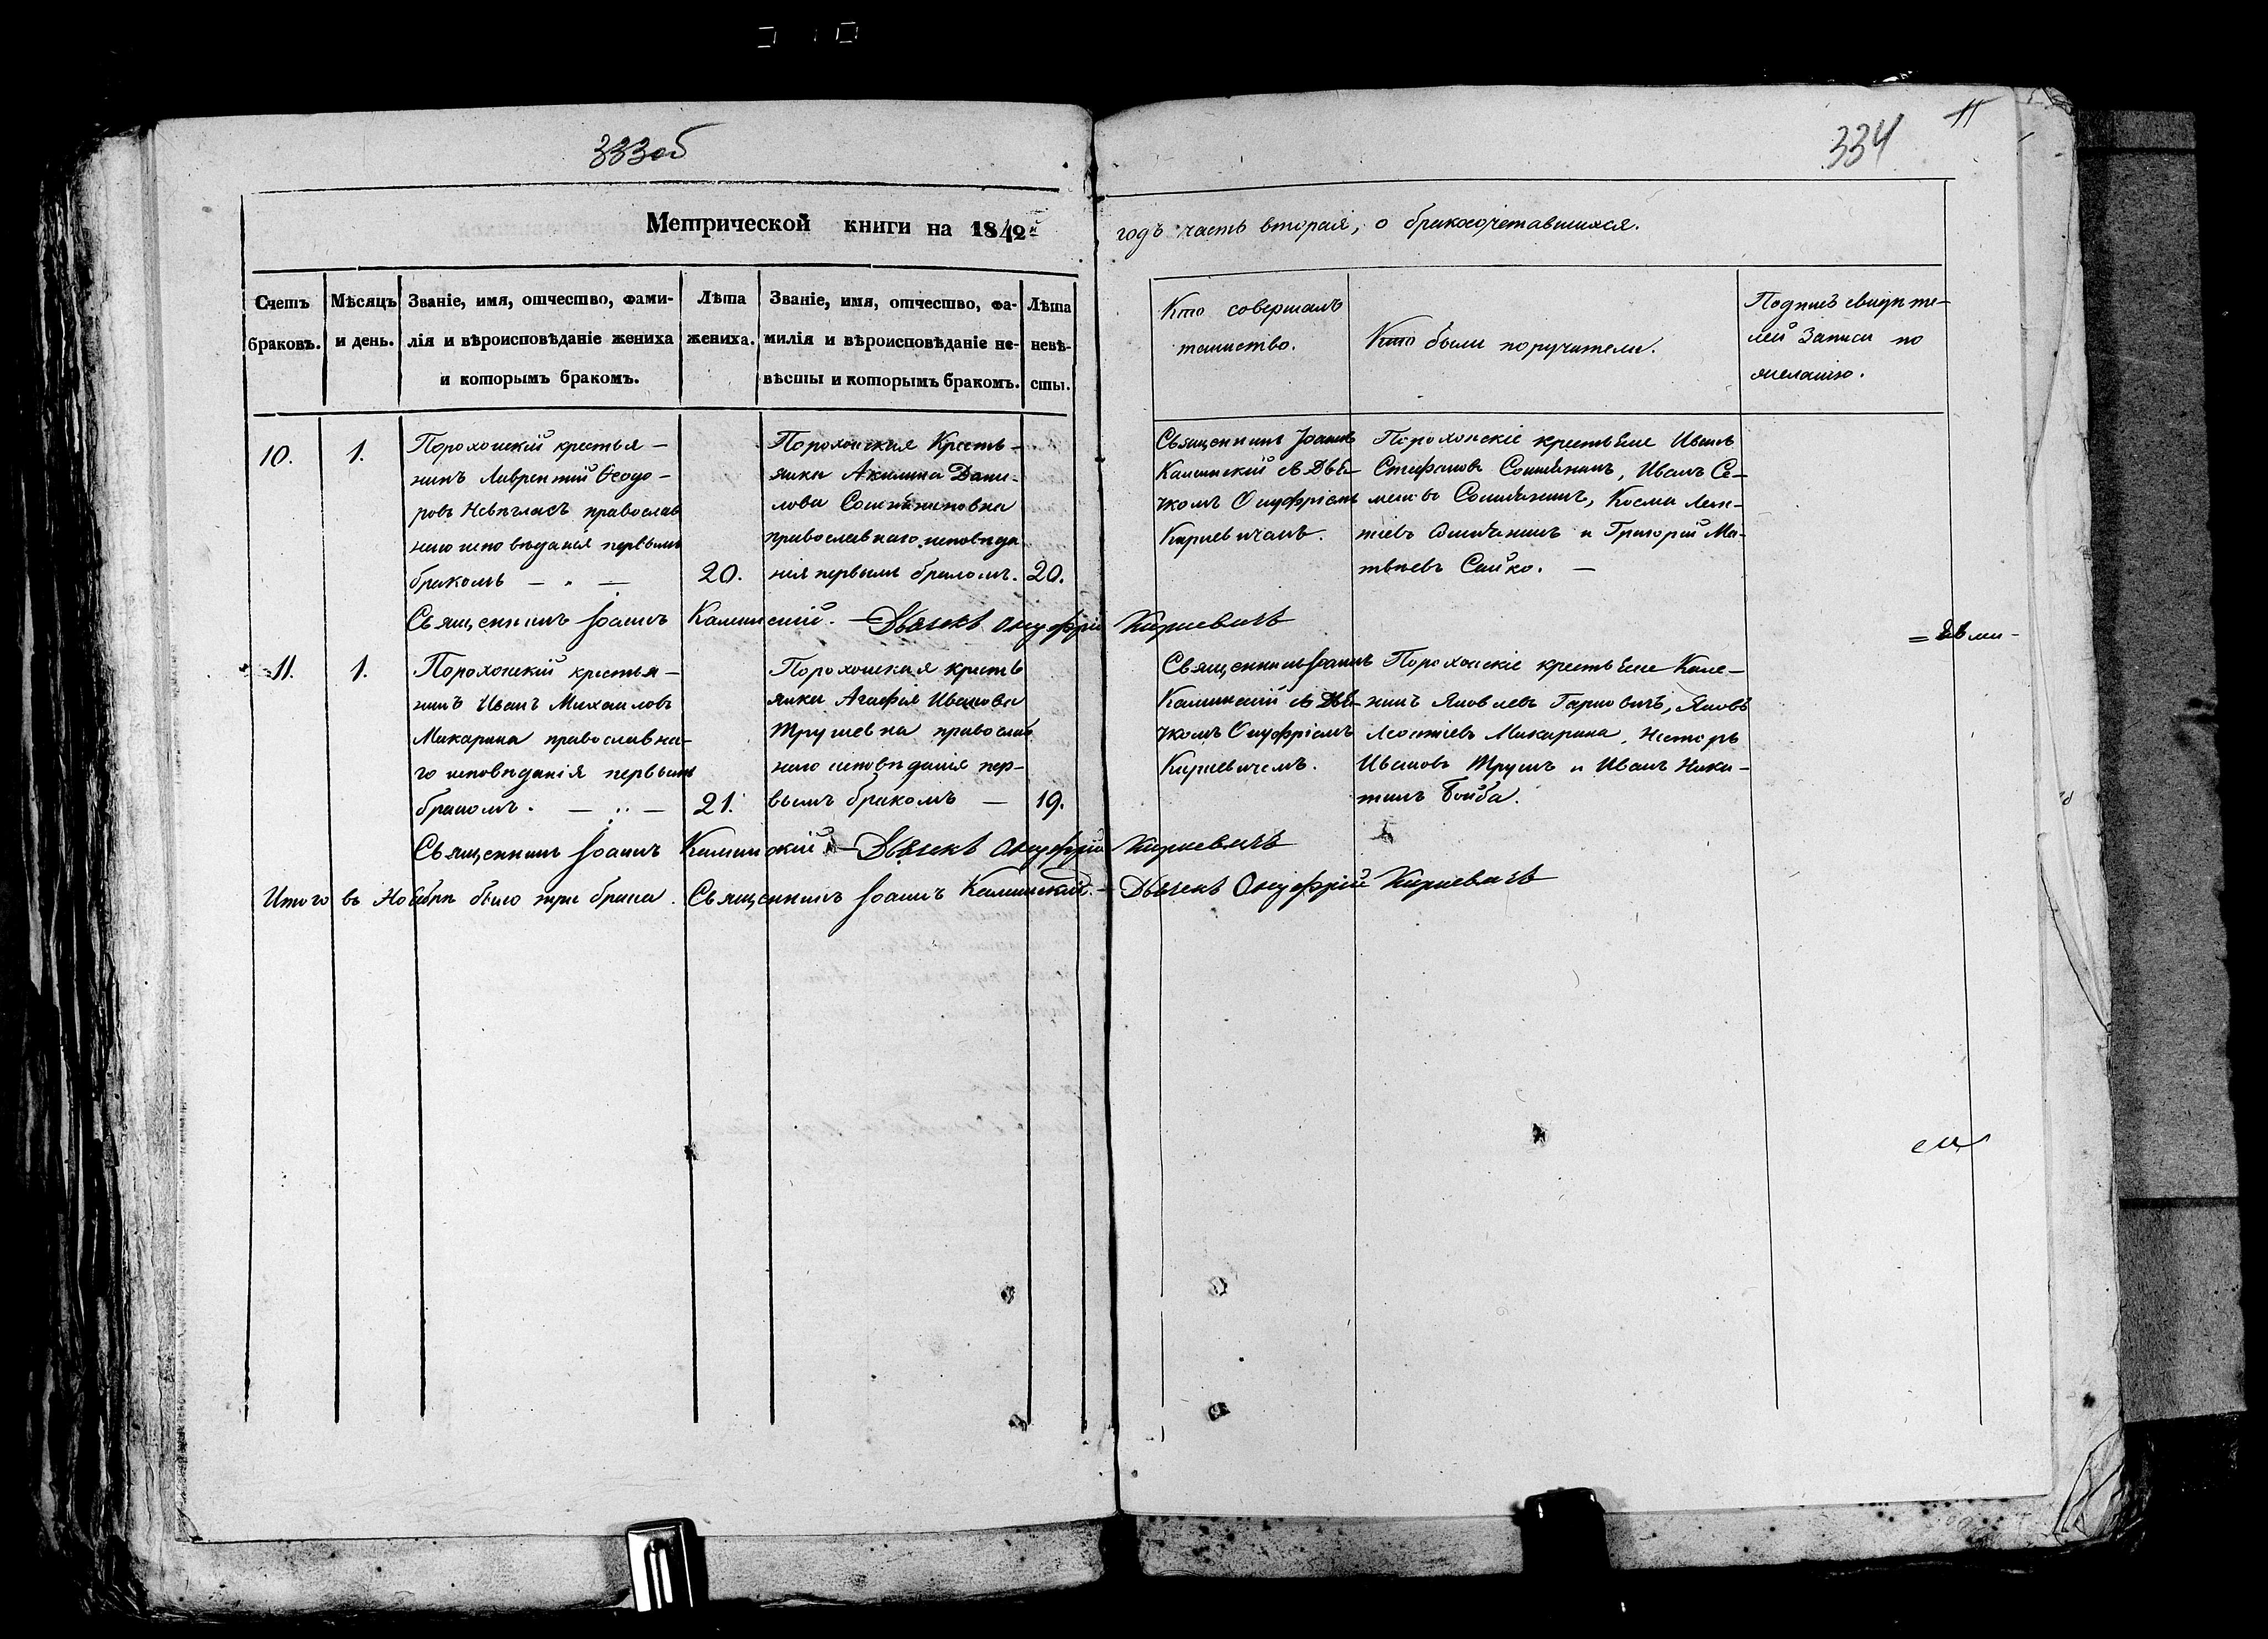 333об
334
11
Метрической книги на 1842й
годъ часть вторая, о бракосочетавшихся.
Счетъ браковъ.
Мѣсяцъ и день.
Званіе, имя, отчество, фами-
лія и вѣроисповѣданіе жениха
и которымъ бракомъ.
Лѣта жениха.
Званіе, имя, отчество, фа-
милія и вѣроисповѣданіе не-
вѣсты и которымъ бракомъ.
Лѣта невѣ-
сты.
Кто совершалъ
таинство.
Кто были поручители.
Подпись свидѣте-
лей записи по
желанію.
10.
1.
Порохонскій крестья-
нинъ Лаврентій Ѳеодо-
ровъ Невѣгласъ православ
наго исповѣданія первымъ
бракомъ
20.
Порохонская Кресть-
янка Акилина Дани-
лова
православнаго исповѣда
нія первымъ бракомъ.
20.
Священникъ Іоаннъ
Калинскій съ Дья-
чкомъ Онуфріемъ
Кирневичемъ.
Порохонскіе крестьяне Иванъ
Стефановъ Сошнянинъ, Иванъ Се-
меновъ Сошнянинъ, Косма Леон-
тіевъ Сошнянинъ и Григорій Ма-
твѣевъ Сайко.
Священникъ Іоаннъ Калинскій. — Дьячекъ Онуфрій Кирневичъ
11.
1.
Порохонскій крестья-
нинъ Иванъ Михаиловъ
Макарина православна-
го исповѣданія первымъ
бракомъ.
21.
Порохонская кресть
янка Агафія Иванова
Трушевна православ
наго исповѣданія пер-
вымъ бракомъ
19.
Священникъ Іоаннъ
Калинскій съ Дья-
чкомъ Онуфріемъ
Кирневичемъ.
Порохонскіе крестьяне Кале-
никъ Яковлевъ Гарновичъ, Яковъ
Леонтіевъ Макарина, Несторъ
Ивановъ Трушъ и Иванъ Ники-
тинъ Бойба.
Священникъ Іоаннъ Калинскій — Дьячекъ Онуфрій Кирневичъ
Итого въ Ноябрѣ было три брака. Священникъ Іоаннъ Калинскій. — Дьячекъ Онуфрій Кирневичъ